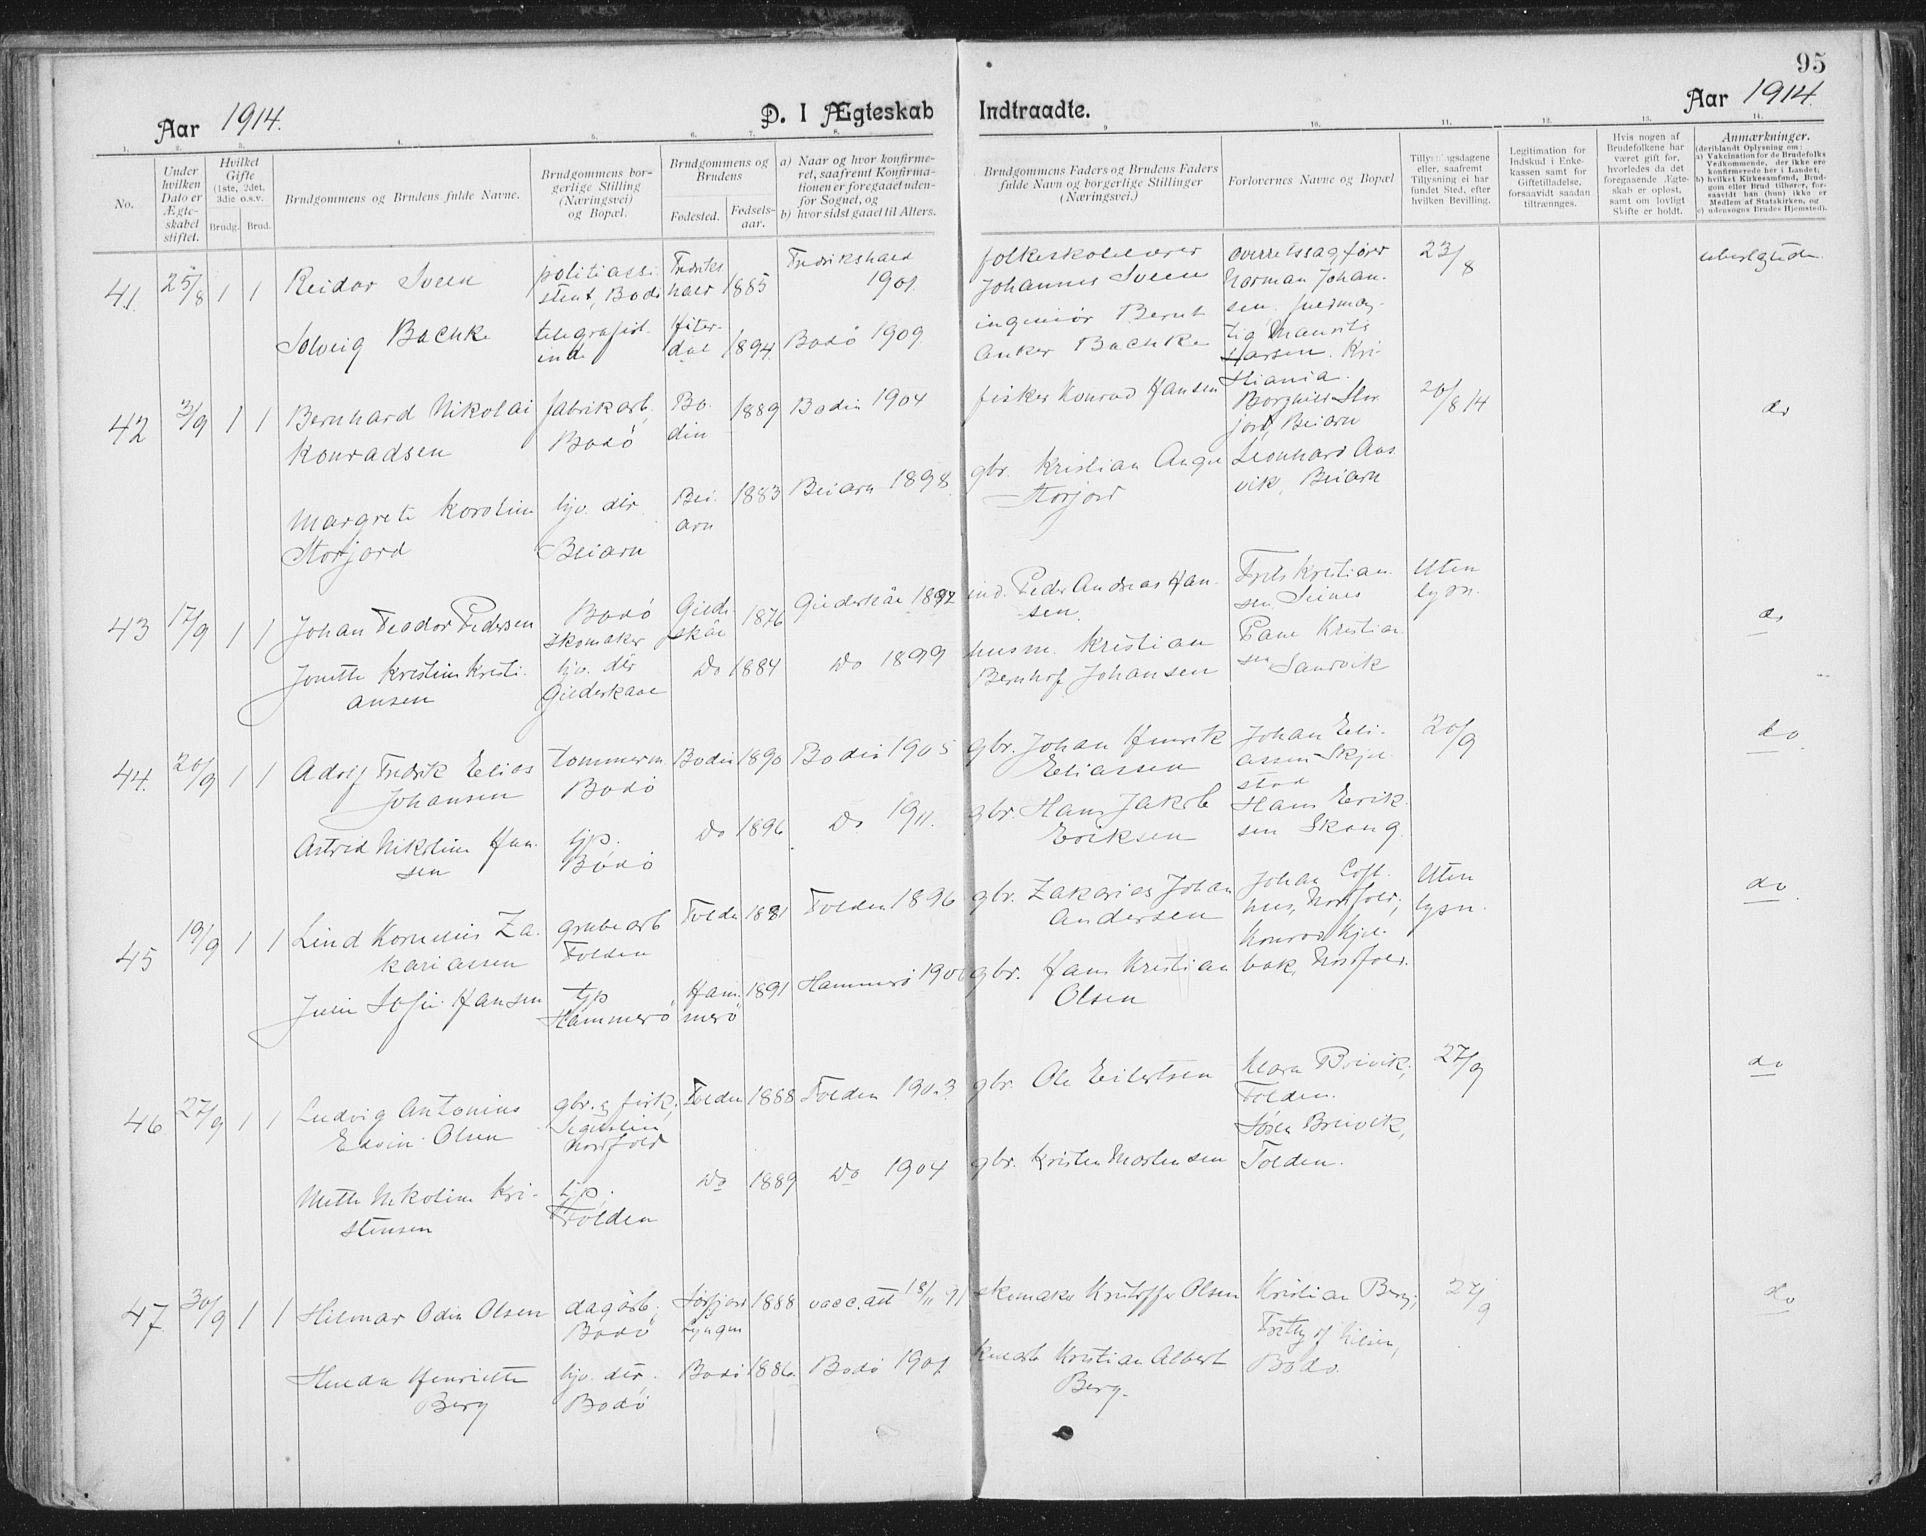 95
Aar 1914.
D. I Ægteskab
Indtraadte.
Aar 1914.
1. 2. 3. 4. 5. 6. 7. 8. 9. 10. 11. 12. 13. 14.
No.
Under
hvilken
Dato er
Ægte-
skabet
stiftet.
Hvilket
Gifte
(1ste, 2det,
3die o.s.v.
Brudg. Brud.
Brudgommens og Brudens fulde Navne.
Brudgommens bor-
gerlige Stilling
(Næringsvei)
og Bopæl.
Brudgommens og
Brudens
Fødested.
Fødsels-
aar.
a) Naar og hvor konfirme-
ret, saafremt Konfirma-
tionen er foregaaet uden-
for Sognet, og
b) hvor sidst gaaet til Alters.
Brudgommens Faders og Brudens Faders
fulde Navn og borgerlige Stillinger
(Næringsvei.)
Forlovernes Navne og Bopæl
Tillysningsdagene
eller, saafremt
Tillysning ei har
fundet Sted, efter
hvilken Bevilling.
Legitimation for
Indskud i Enke-
kassen samt for
Giftetilladelse,
forsaavidt saadan
tiltrænges.
Hvis nogen af
Brudefolkene har
været gift før,
hvorledes da det
foregaaende Ægte-
skab er opløst,
samt om lovligt
Skifte er holdt.
Anmærkninger.
(deriblandt Oplysning om:
a) Vakcination for de Brudefolks
Vedkommende, der ikke ere
konfirmerede her i Landet;
b) hvilket Kirkesamfund, Brud-
gom eller Brud tilhører, for-
saavidt han (hun) ikke er
Medlem af Statskirken, og
c) udensogns Brudes Hjemsted).
41. 25/8 1 1
Reidar Sveen
politiassi-
stent, Bodø
Fredriks
hald
1885
Fredrikshald
1901.
folkeskolelærer
Johannes Sveen
overretssagfører
Norman Johan-
sen.
23/8
Solveig Bachke
telegrafist-
inde
Hiter-
dal
1894.
Bodø 1909.
ingeniør Bernt
Anker Bachke
Maurits
Larsen. Kri-
stiania.
42 3/9 1 1
Bernhard Nikolai
Konradsen
fabrikarb.
Bodø
Bo-
din
1889
Bodin 1904
fisker Konrad Hansen
Borghild Stor
jord, Beiarn
20/8 14
do
Margrete Karoline
Storjord
hjv. dér
Beiarn
Bei-
arn
1883
Beiarn 1898.
gbr. Kristian Ange
Storjord
Leonhard Aas
vik, Beiarn
43 17/9 1 1
Johan Teodor Pedersen
Bodø
skomaker
Gilde-
skåe
1876
Gilderskåe 1892
ind. Peder Andreas Han-
sen.
Kristian-
sen Seines
Uten
lysn.
do
Jonette Kristine Kristi-
ansen
hjv. dér
Gilderskaae
Do 1884
Do 1899
husm. Kristian
Bernhof Johansen
Kristian-
sen Sandvik
44. 20/9 1 1
Adolf Fredrik Elias
Johansen
tømmerm.
Bodø
Bodin 1890
Bodin 1905
gbr. Johan Henrik
Eliassen
Johan Eli-
assen Skjel-
stad
20/9
do.
Astrid Nikoline Han-
sen
tjp.
Bodø
Do 1896
Do 1911.
gbr. Hans Jakob
Eriksen
Hans Erik-
sen Skaug.
45 19/9 1 1
Lind Kornelius Za-
kariassen
grubearb
Folden
Folden 1881
Folden 1896
gbr. Zakarias Johan
Andersen
Johan
hus, Nordfold;
Uten
lysn.
do.
Julie Sofie Hansen
tjp
Hammerø
Ham-
merø
1891
Hammerø 190
gbr. Hans Kristian
Olsen
Konrad Kjel-
bak, Nordfold.
46 27/9 1 1
Ludvig Antonius
Edvin Olsen
gbr. & fisk.
Nordfold
Folden 1888
Folden 1903.
gbr. Ole Eilertsen
Klara Breivik,
Folden.
27/9
do
Mette Nikoline Kri-
stensen
tjp.
Folden
Do 1889
Do 1904
gbr. Kristen Mortensen
Søren Breivik,
Folden.
47. 30/9 1 1
Hilmar Odin Olsen
dagarb;
Bodø
Sørfjord
Lyngen
1888
vacc. att 18/11 91
skomaker Kristoffer Olsen
Kristian Berg,
27/9
do
Hulda Henriette
Berg
hjv. dér.
Bodø
Bodø 1886.
Bodø 1901.
Kristian Albert
Berg.
Bodø.